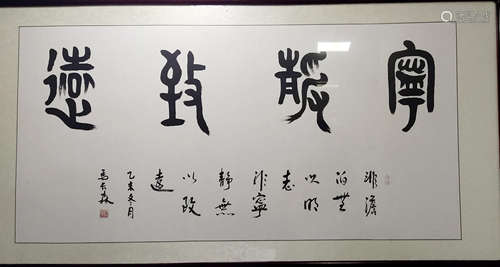 寧靜致遠
非澹
泊無
以明
志
非寧
靜無
以致
遠
乙未冬月